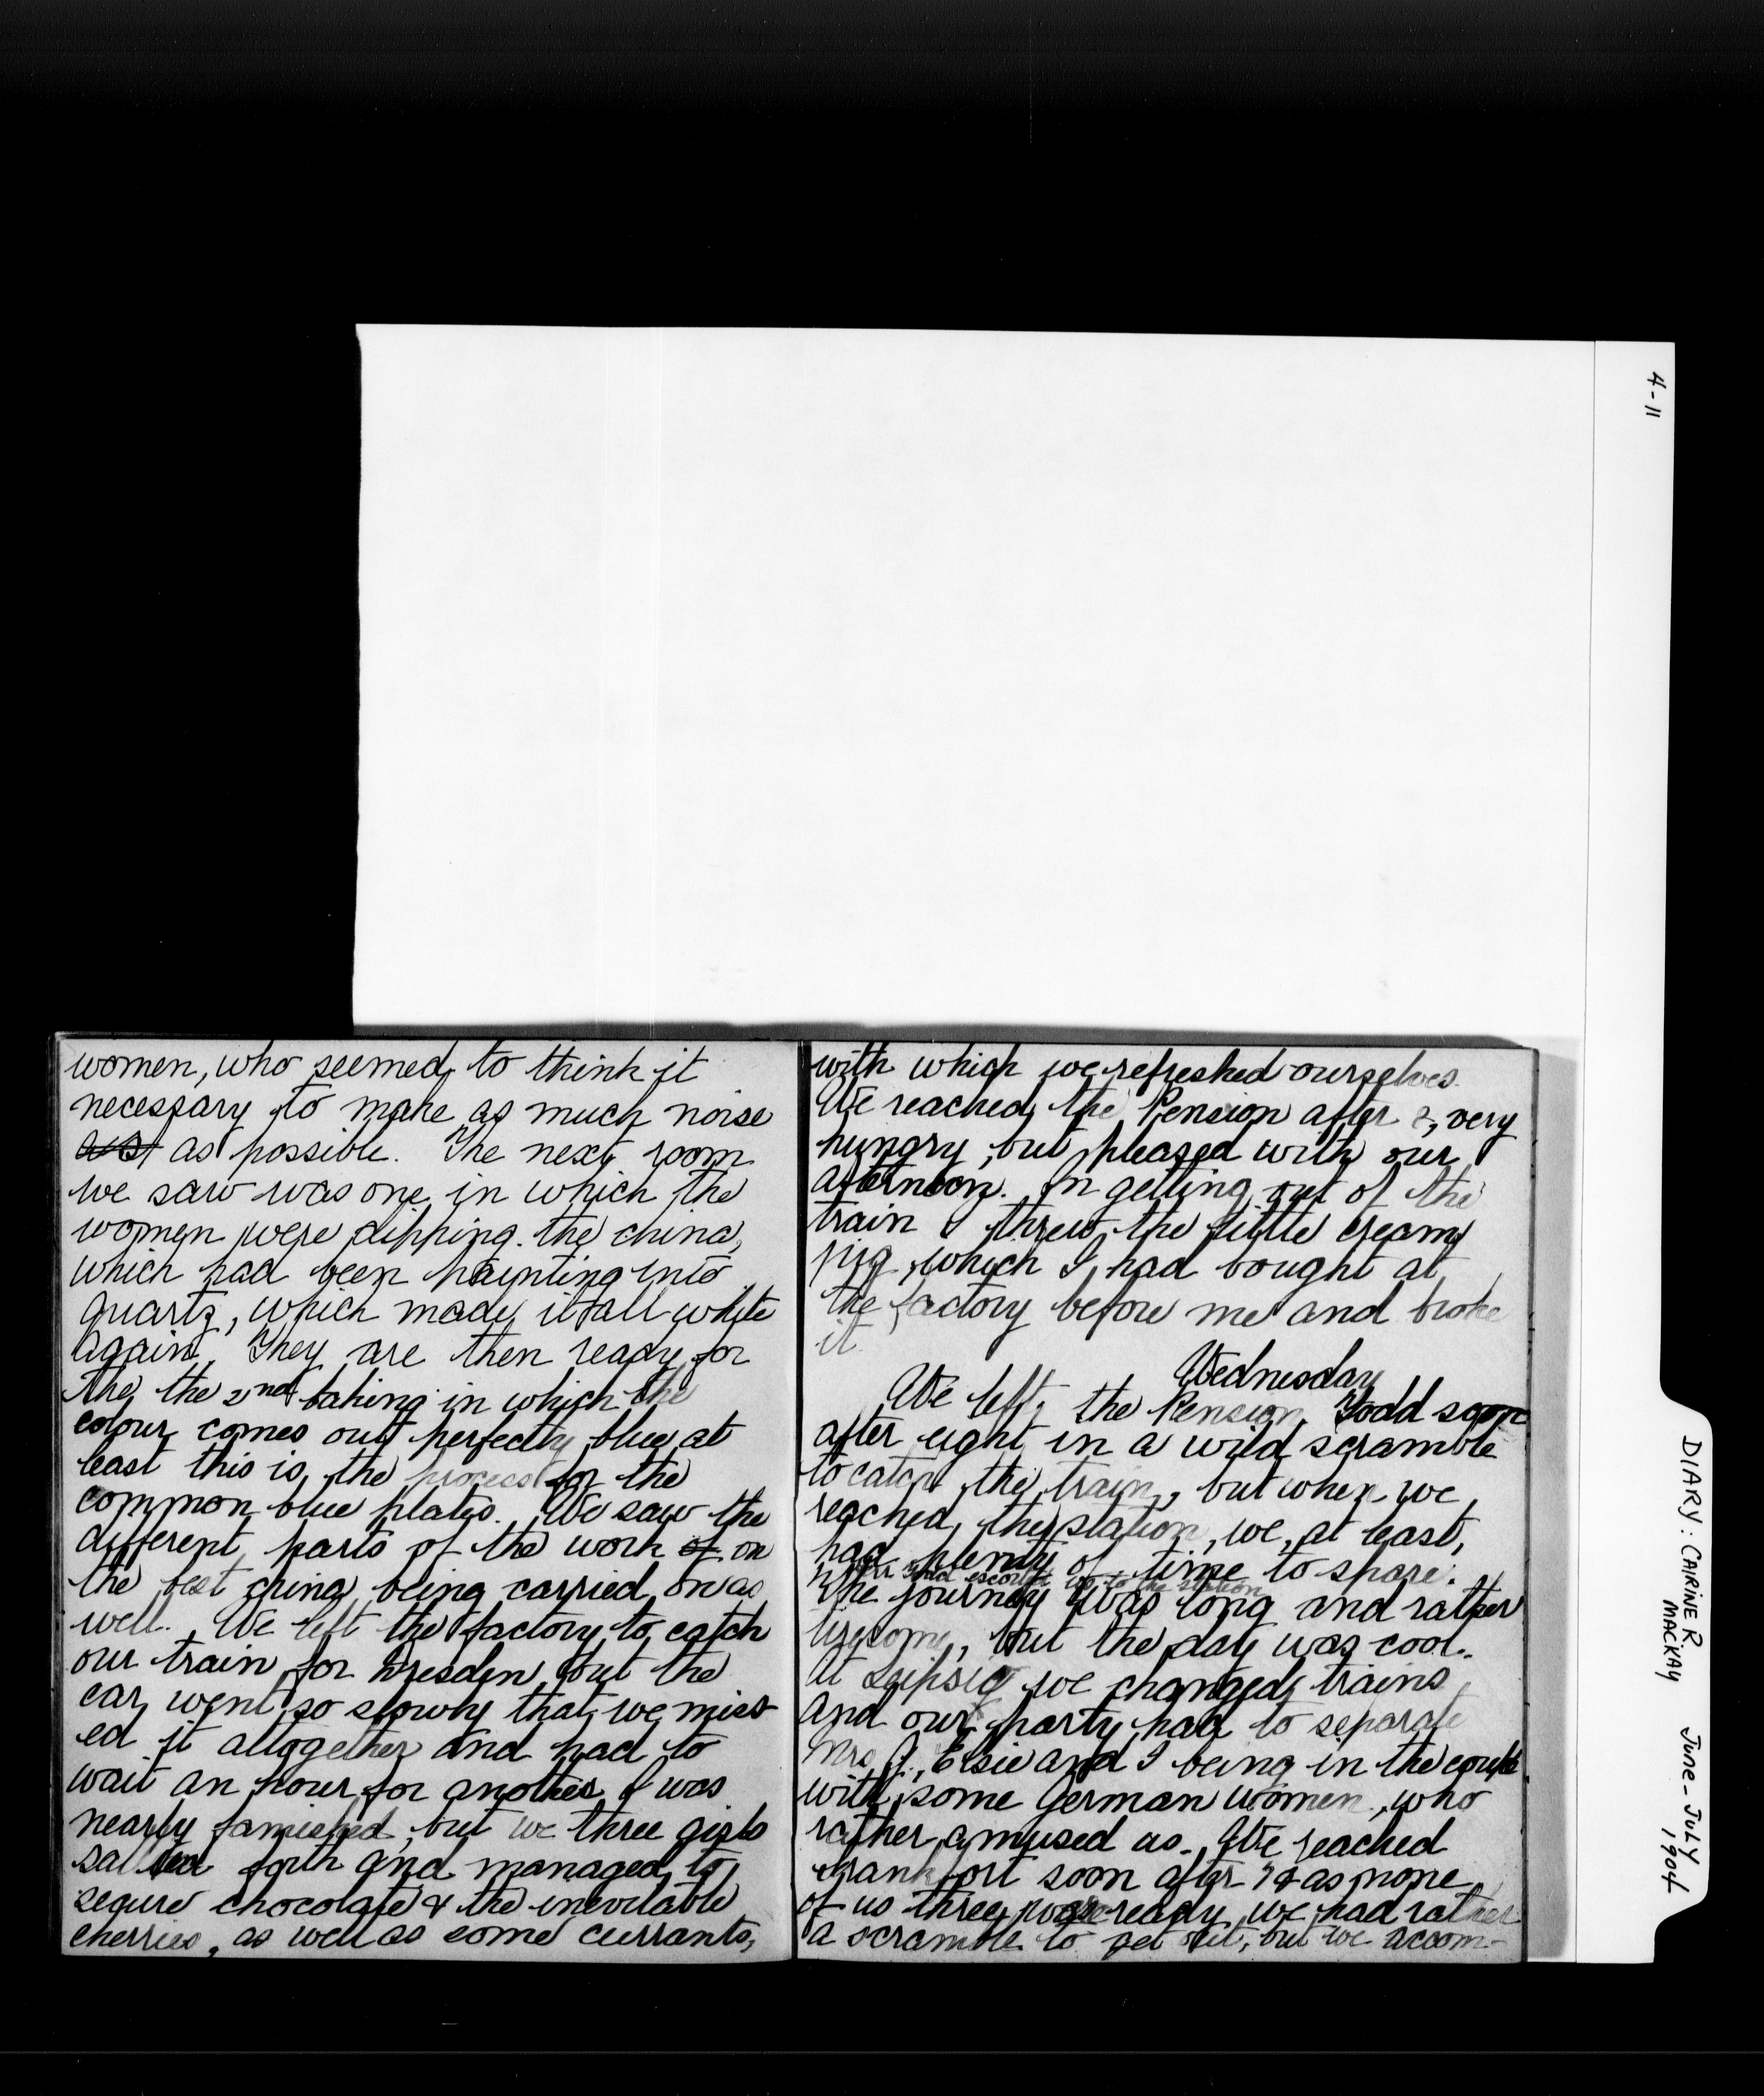 women, who seemed to think it
necessary to make as much noise
as possible. The next room
we saw was one in which the
women were dipping the china,
which had been painting into
quartz, which made it all white
again. They are then ready for
the the 2nd baking in which the
colour comes out perfectly blue at
least this is the process for the
common blue plates. We saw the
different parts of the work of on
the best china being carried on as
well. We left the factory to catch
our train for Dresden but the
car went so slowly that we miss
ed it altogether and had to
wait an hour for another. I was
nearly famished, but we three girls
sallied forth and managed to
secure chocolate & the inevitable
cherries, as well as some currants,
with which we refreshed ourselves.
We reached the Pension after 8, very
hungry, but pleased with our
afternoon. In getting out of the
train I threw the little cream
jug, which I had bought at
the factory before me and broke
it.
Wednesday
We left the Pension Todd soon
after eight in a wild scramble
to catch the train, but when we
reached the station, we, at least,
had plenty of time to spare.
escort us to the station
The journey was long and rather
tiresome, but the day was cool.
At Leipsig we changed trains
and our party had to separate
Mrs. J., Elsie and I being in the coupe
with some German women, who
rather amused us. We reached
Frankfort soon after 7 & as none
of us three were ready, we had rather
a scramble to get out, but we accom-
4-11
DIARY: CARINE R.
MACKAY
June - July
1904